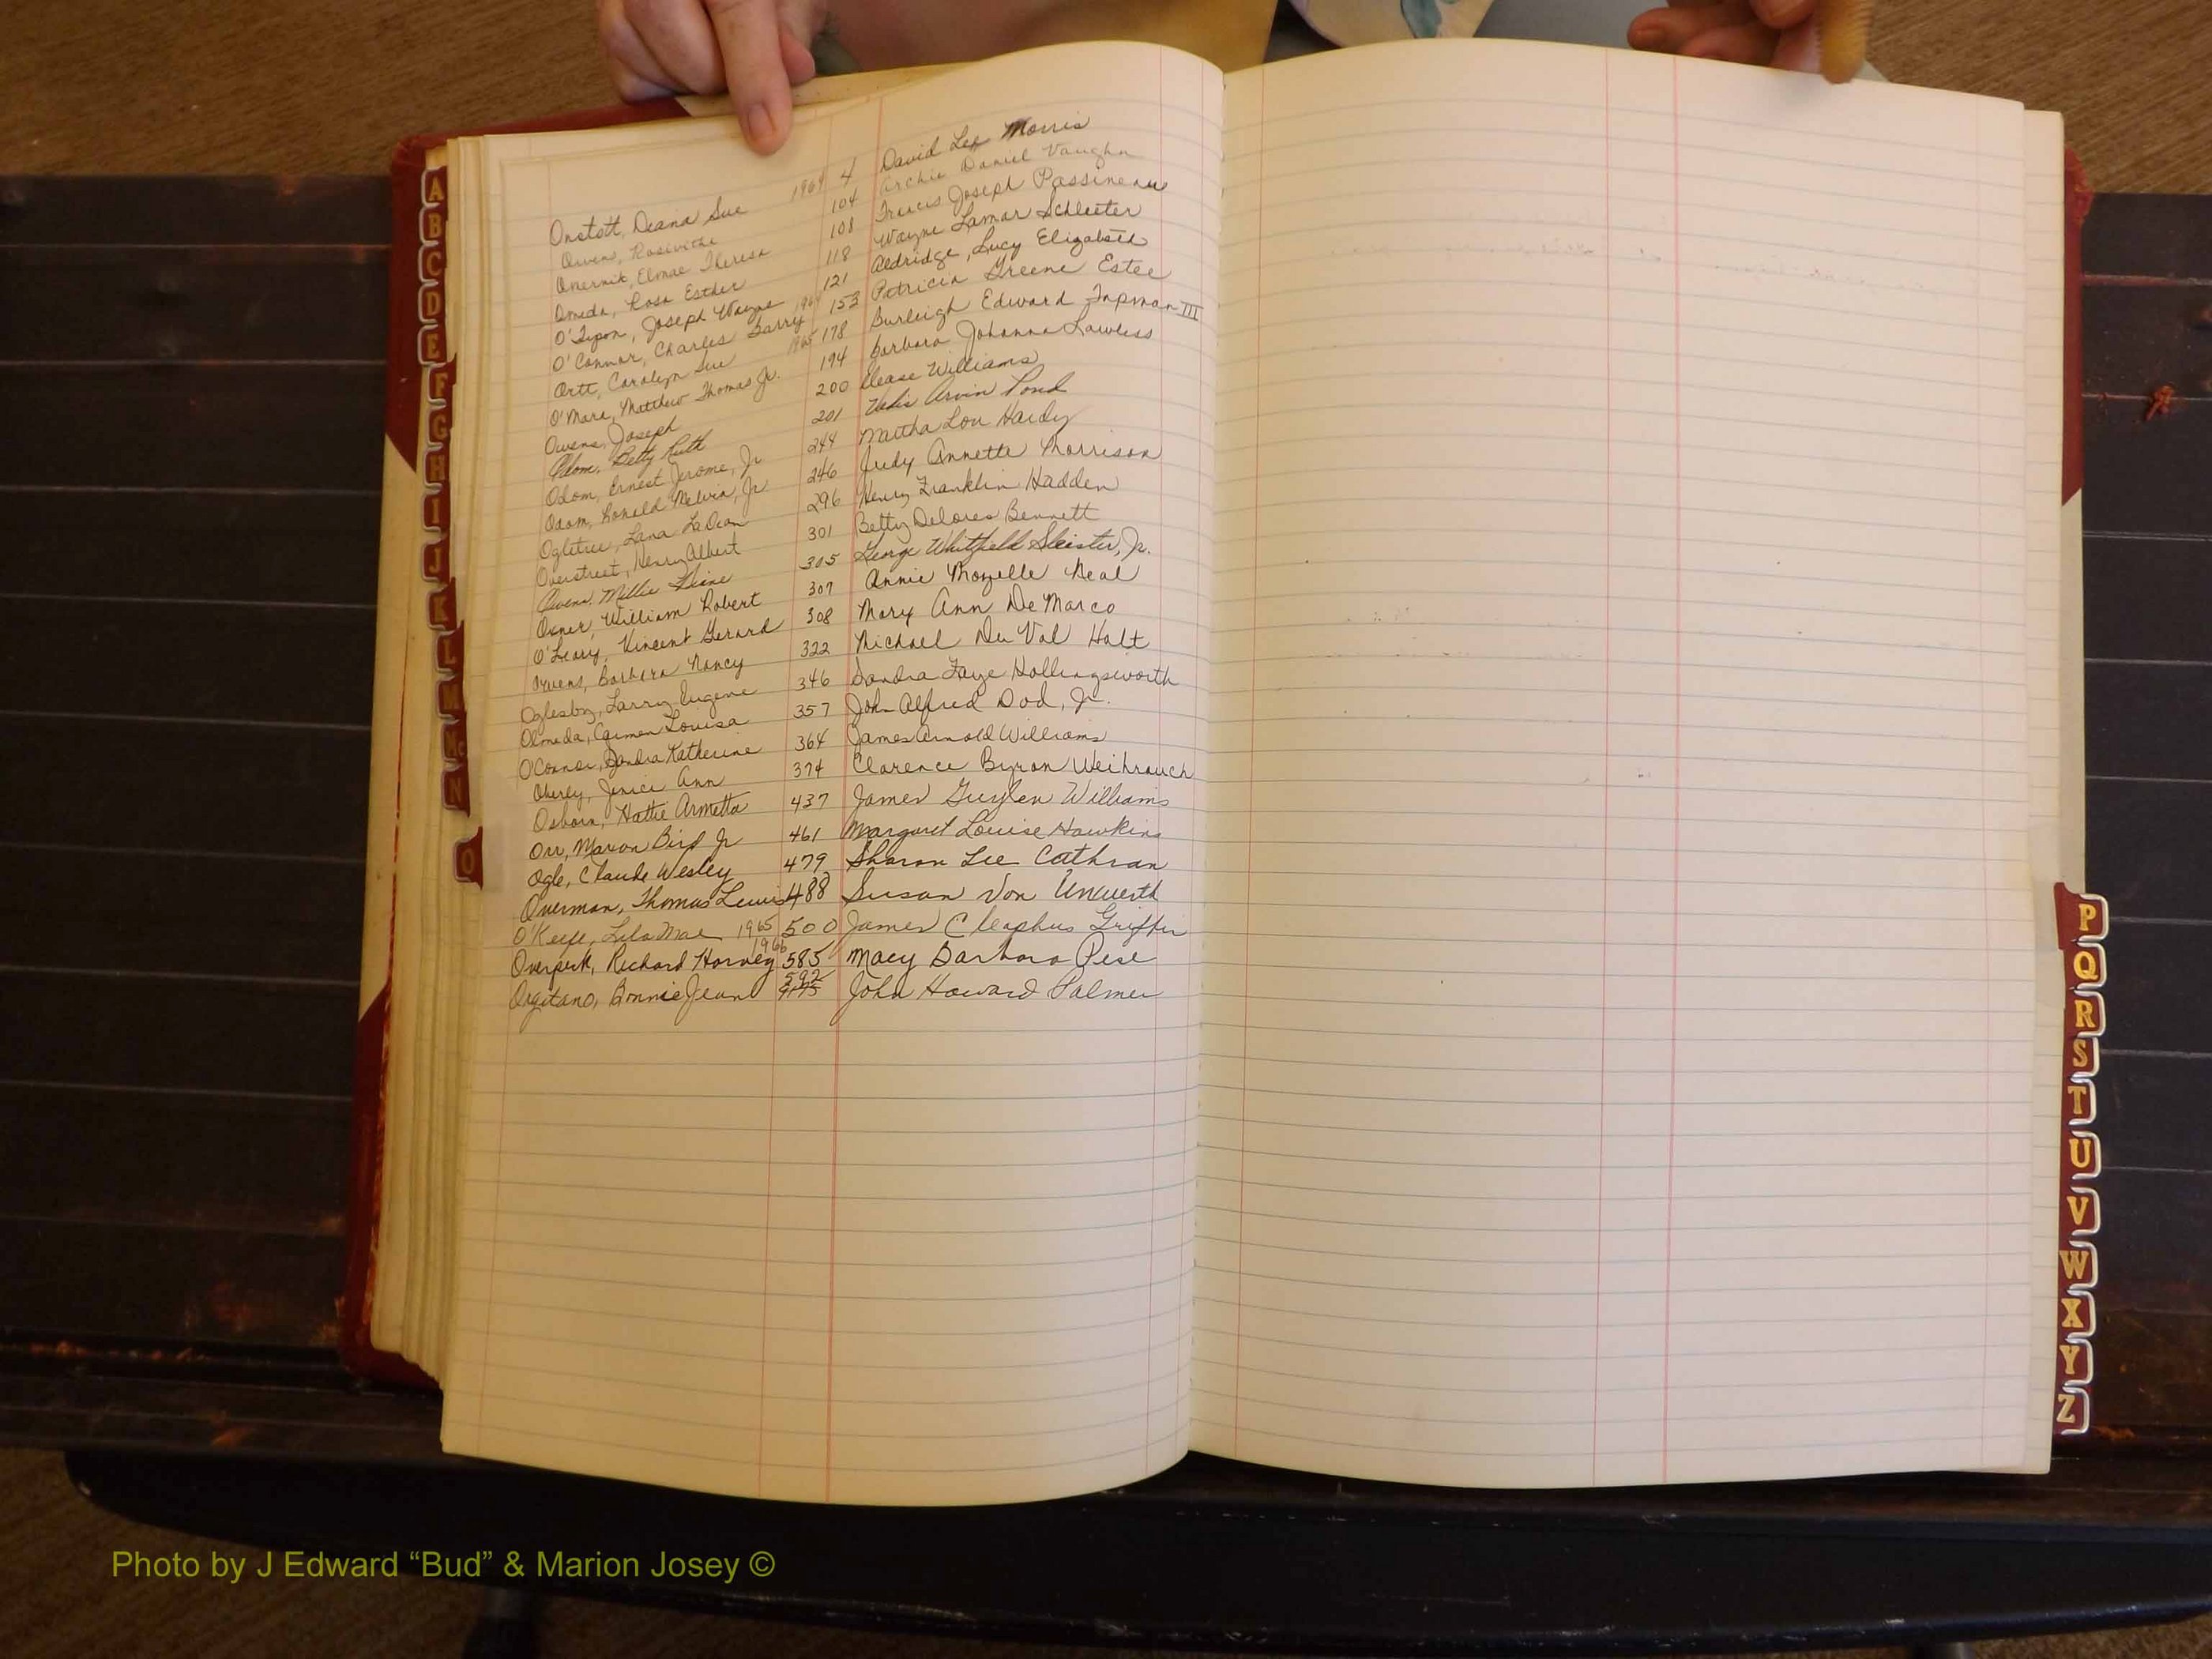 Onstott, Deana Sue 1964 4 David Lee Morris
Owens, Rosivithe 104 Archie Daniel Vaughn
Onernik, Elmae Theresa 108 Francis Joseph Passineau
Omeda, Rosa Esther 118 Wayne Lamar Schleeter
O'Tipon, Joseph Wayne 121 Aldridge, Lucy Elizabeth
O'Connor, Charles Barry 1964 153 Patricia Greene Estee
Ortt, Carolyn Sue 1965 178 Burleigh Edward Tapman III
O'Mara, Matthew Thomas Jr. 194 Barbara Johanna Lawless
Owens, Joseph 200 Please Williams
Odom, Betty Ruth 201 Arvin Pond
Odom, Ernest Jerome, Jr 244 Martha Lou Hardy
Odom, Ronald Melvin, Jr 246 Judy Annette Morrison
Ogletree, Lana LaDean 296 Henry Franklin Hadden
Overstreet, Henry Albert 301 Betty Delores Bennett
Owens, Millie Diane 305 George Whitfield Sleister, Jr.
Oxner, William Robert 307 Annie Mozelle Neal
O'Leary, Vincent Gerard 308 Mary Ann DeMarco
Owens, Barbara Nancy 322 Michael Du Val Holt
Oglesby, Larry Eugene 346 Sandra Faye Hollingsworth
Olmeda, Carmen Louisa 357 John Alfred Dod, Jr.
O'Connor, Sandra Katherine 364 James Arnold Williams
Oberly, Janice Ann 374 Clarence Byron Weihrauch
Osborn, Hattie Armetta 437 James Guylen Williams
Orr, Marion Bird Jr 461 Margaret Louise Hawkins
Ogle, Claude Wesley 479 Sharon Lee Cathran
Overman, Thomas Lewis 488 Susan Von Unwerth
O'Keefe, Lila Mae 1965 500 James Cleaphus Griffin
Overpeck, Richard Harvey 1966 585 Macy Barbara Pese
Orgitano, Bonnie Jean 592 John Howard Palmer
A
B
C
D
E
F
G
H
I
J
K
L
M
Mc
N
O
P
Q
R
S
T
U
V
W
X
Y
Z
Photo by J Edward “Bud” & Marion Josey ©